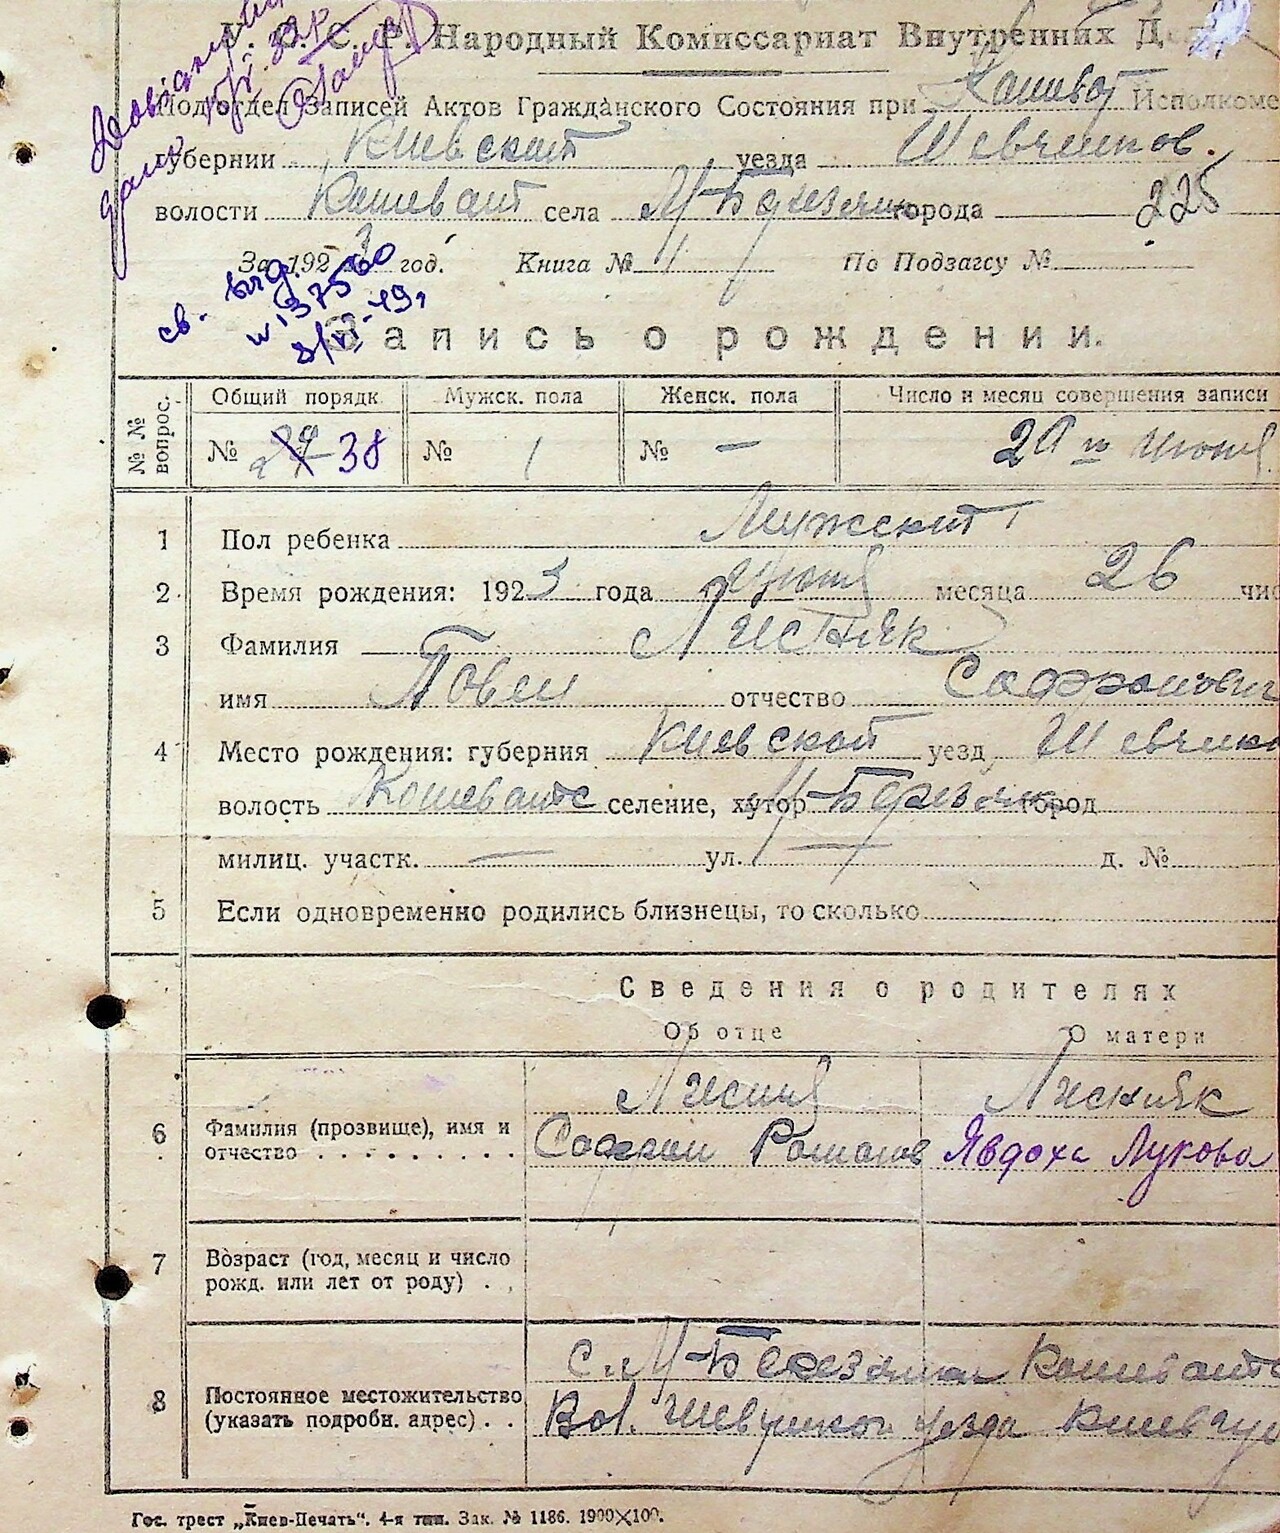 С. Р. Народный Комиссариат Внутренних Д
Подотдел Записей Актов Гражданского Состояния при Исполкоме
губернии Киевской уезда Шевченков.
волости села М-Березянка города 225
За 192 3 год. Книга № 1 По Подзагсу №
св. выд.
№ 137560
Запись о рождении.
№№ вопрос.
Общий порядк Мужск. пола Женск. пола Число и месяц совершения записи
№ 38 № 1 № — 29 го июня
1 Пол ребенка Мужской
2 Время рождения: 1923 года июня месяца 26 чис
3 Фамилия Лисняк
имя Павел отчество Софронович
4 Место рождения: губерния Киевской уезд Шевченко
волость селение, хутор М-Березянка город
милиц. участк. — ул. — д. №
5 Если одновременно родились близнецы, то сколько
Сведения о родителях
Об отце О матери
Лисняк
6 Фамилия (прозвище), имя и
отчество . . . . . . . . .
Софрон Романов Явдоха Лукова
7 Возраст (год, месяц и число
рожд. или лет от роду) . .
с. М-Березянка
8 Постоянное местожительство
(указать подробн. адрес) . .
Вол. уезда Киев губ
Гос. трест „Киев-Печать". 4-я тип. Зак. № 1186. 1900×100.